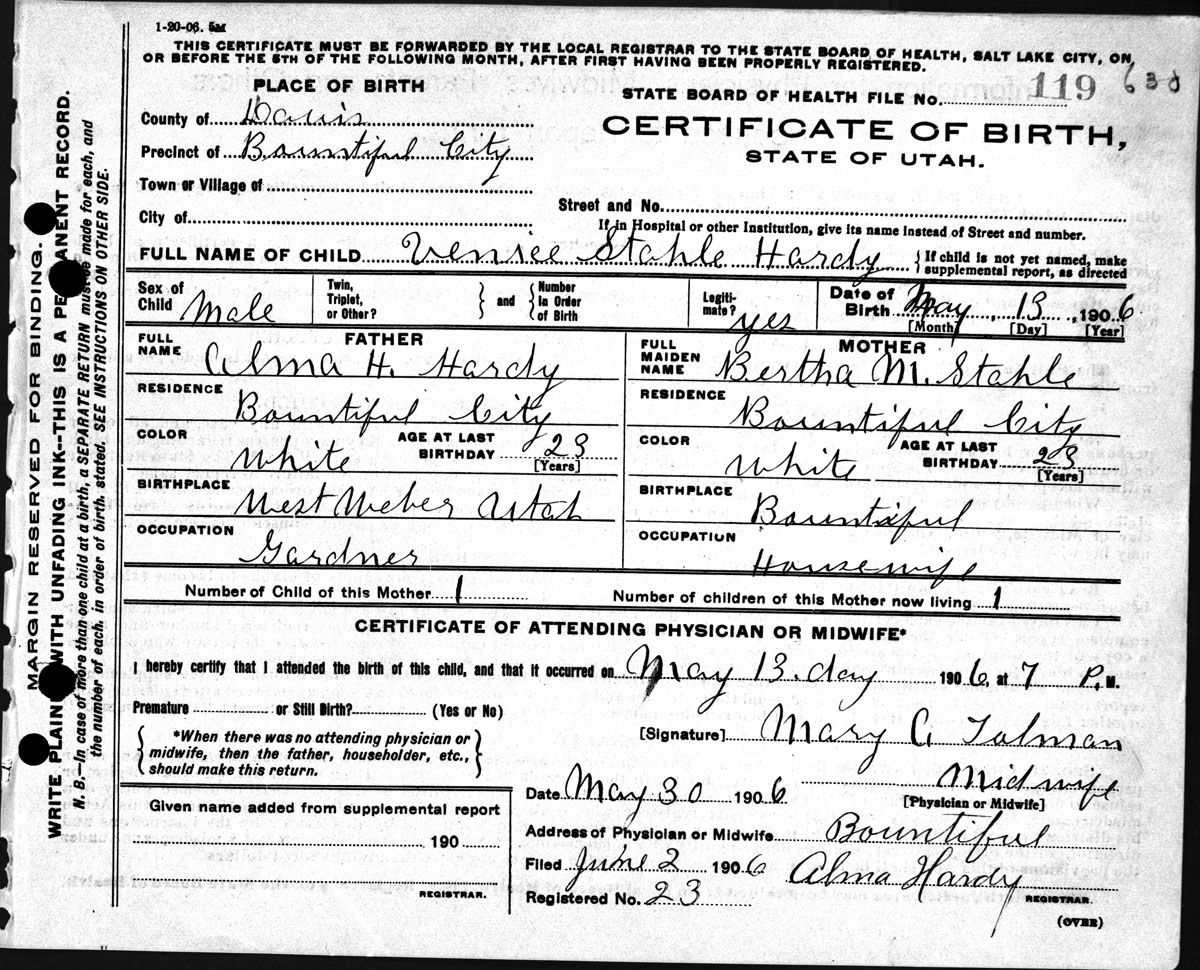 1-20-06. 5M
THIS CERTIFICATE MUST BE FORWARDED BY THE LOCAL REGISTRAR TO THE STATE BOARD OF HEALTH, SALT LAKE CITY, ON
OR BEFORE THE 5TH OF THE FOLLOWING MONTH, AFTER FIRST HAVING BEEN PROPERLY REGISTERED.
PLACE OF BIRTH
STATE BOARD OF HEALTH FILE No. 119 638
County of Davis
CERTIFICATE OF BIRTH,
Precinct of Bountiful City
STATE OF UTAH.
Town or Village of
Street and No.
City of
If in Hospital or other Institution, give its name instead of Street and number.
FULL NAME OF CHILD Venice Stahle Hardy {If child is not yet named, make
supplemental report, as directed
Sex of Child Male Twin, Triplet, or Other? } and { Number in Order of Birth Legiti-mate? yes Date of Birth May, 13, 1906
[Month] [Day] [Year]
FATHER
FULL NAME Alma H. Hardy
RESIDENCE
Bountiful City
COLOR White AGE AT LAST BIRTHDAY 23
[Years]
BIRTHPLACE
West Weber Utah
OCCUPATION
Gardner
MOTHER
FULL MAIDEN NAME Bertha M. Stahle
RESIDENCE
Bountiful City
COLOR White AGE AT LAST BIRTHDAY 23
[Years]
BIRTHPLACE
Bountiful
OCCUPATION
Housewife
Number of Child of this Mother 1 Number of children of this Mother now living 1
CERTIFICATE OF ATTENDING PHYSICIAN OR MIDWIFE*
I hereby certify that I attended the birth of this child, and that it occurred on May 13. day 1906 at 7 P. M.
Premature or Still Birth? (Yes or No)
{*When there was no attending physician or
midwife, then the father, householder, etc.,
should make this return.}
[Signature] Mary C. Tolman
Midwife
[Physician or Midwife]
Date May 30 1906
Address of Physician or Midwife Bountiful
Filed June 2 1906 Alma Hardy
REGISTRAR.
Registered No. 23
(OVER)
Given name added from supplemental report
190
REGISTRAR.
MARGIN RESERVED FOR BINDING.
WRITE PLAIN WITH UNFADING INK--THIS IS A PE ANENT RECORD.
N. B.--In case of more than one child at a birth, a SEPARATE RETURN must be made for each, and
the number of each, in order of birth, stated. SEE INSTRUCTIONS ON OTHER SIDE.